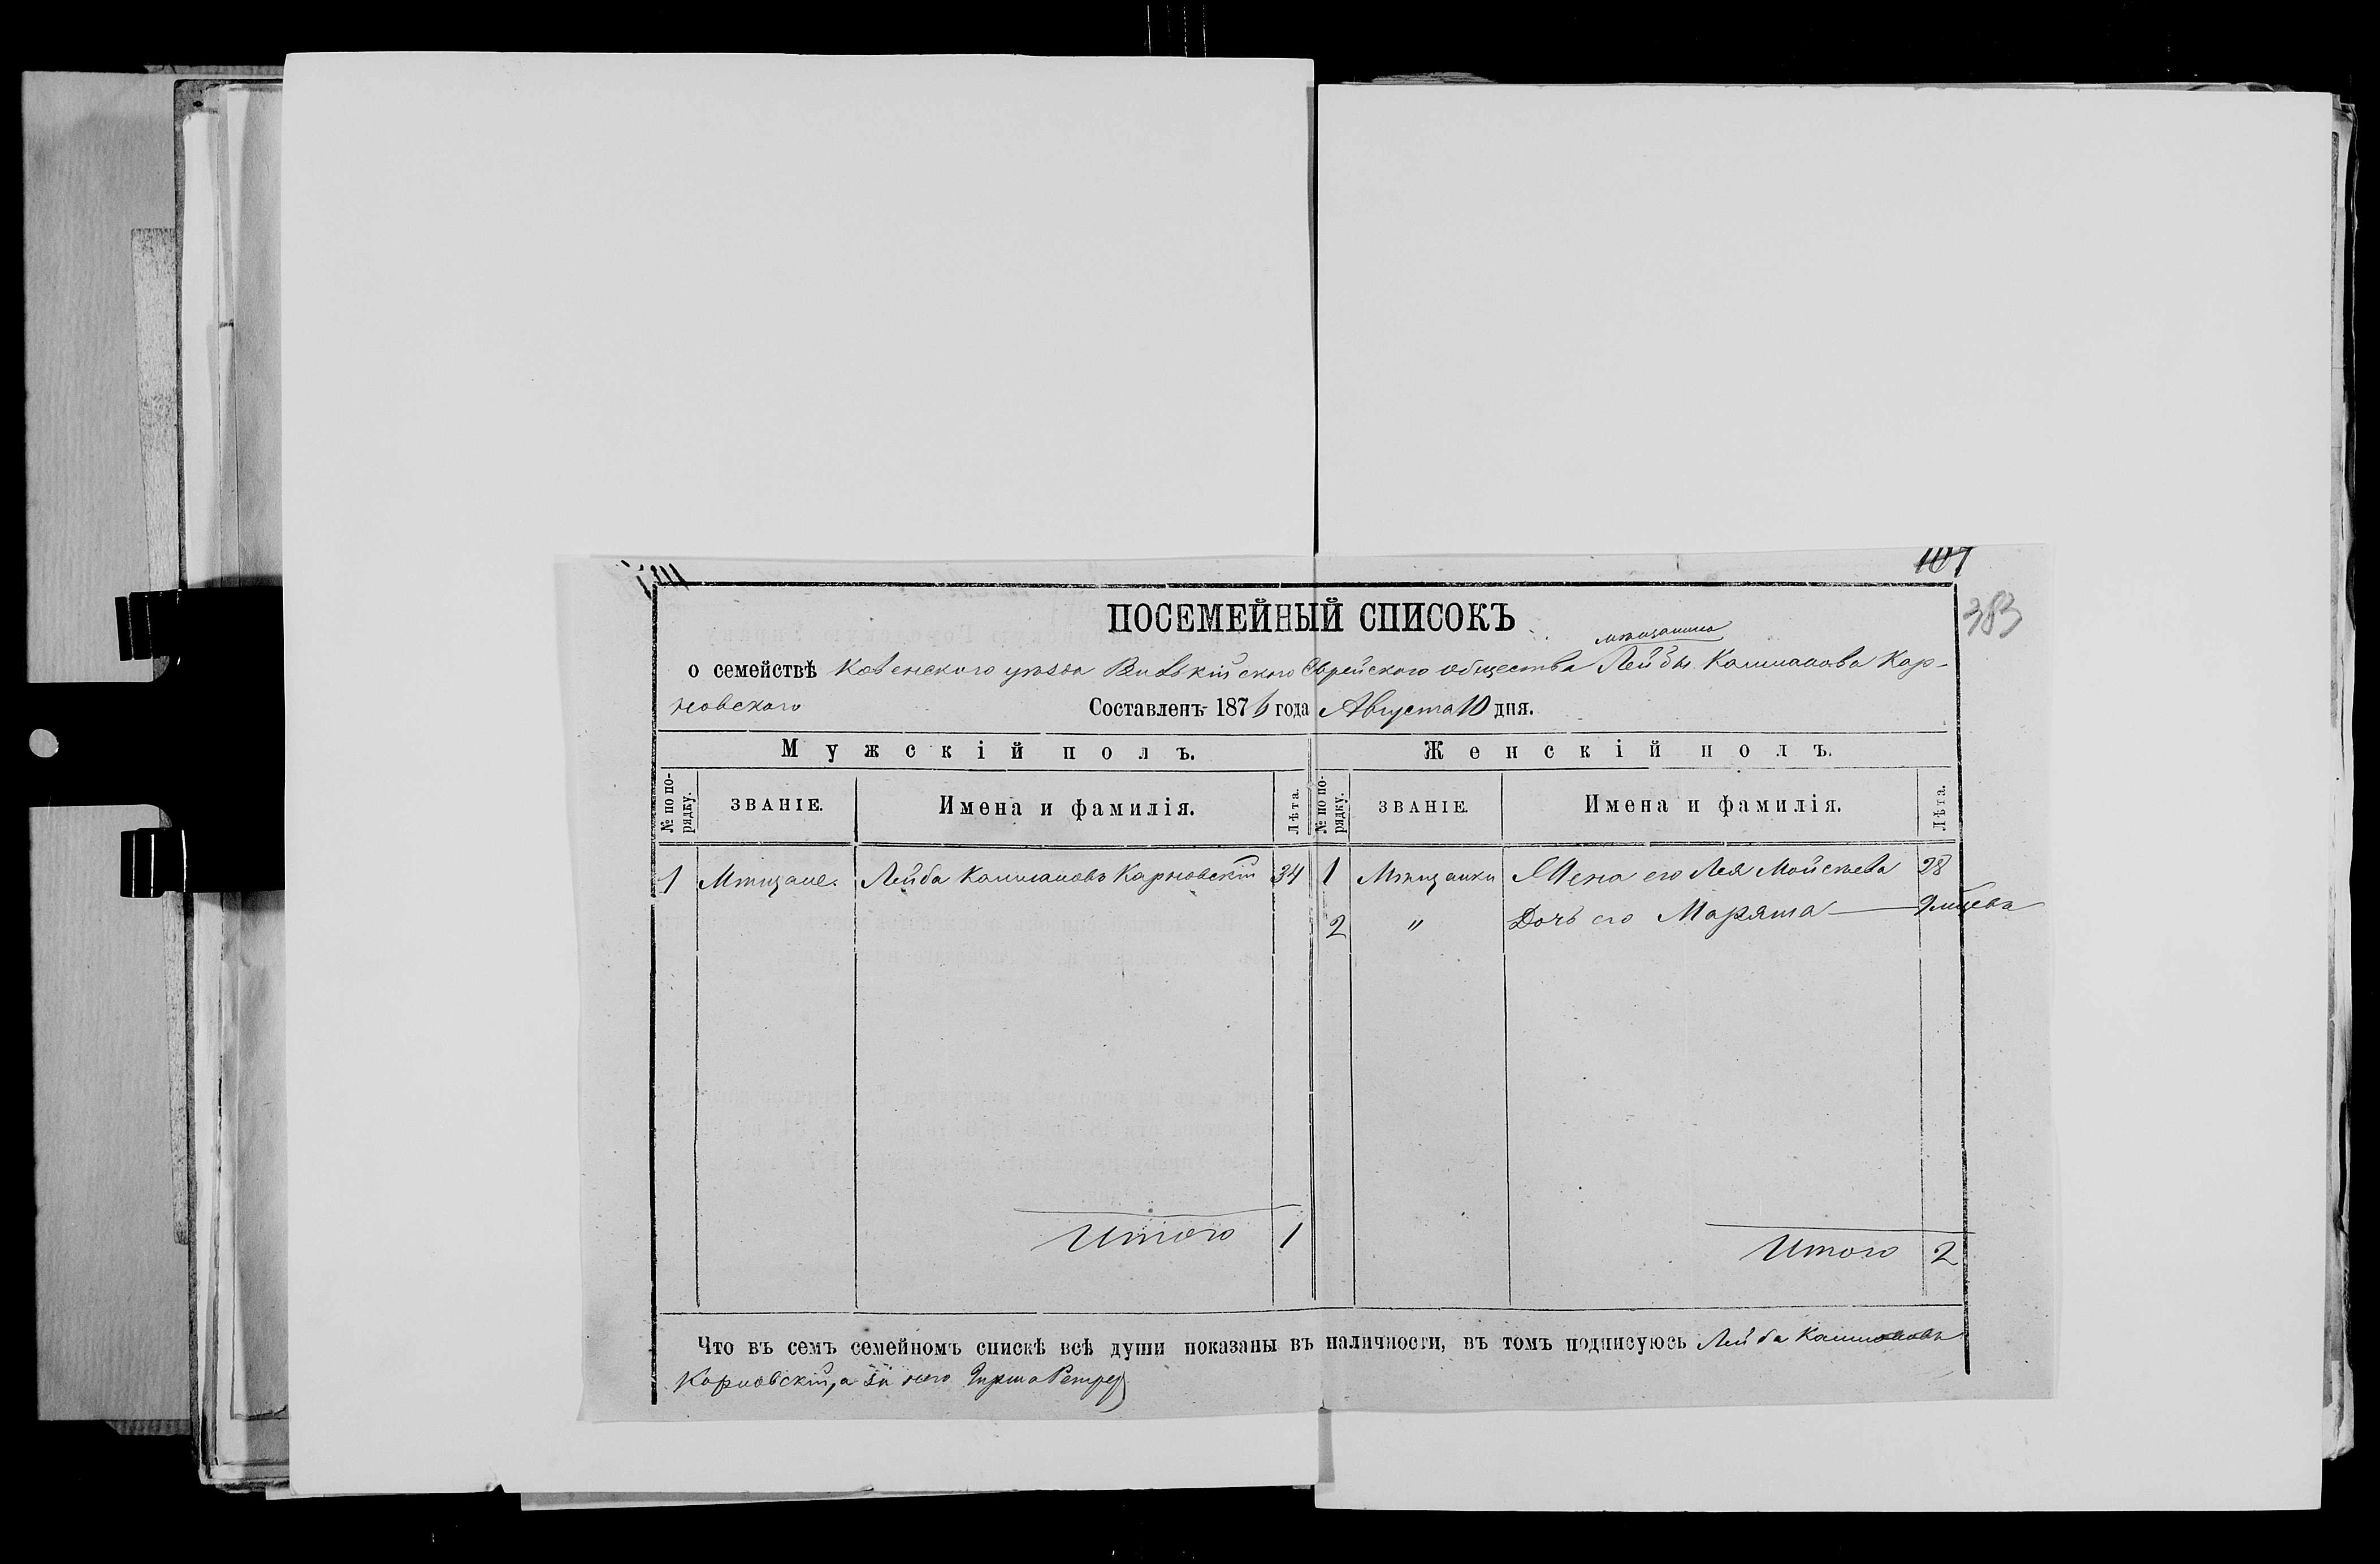 107
383
ПОСЕМЕЙНЫЙ СПИСОКЪ
мѣщанина
о семействѣ Ковенскаго уѣзда Вилькійскаго Еврейскаго Общества Лейбы Калманова Кар-
новскаго Составленъ 1876 года Августа 10 дня.
Мужскій полъ. Женскій полъ.
№ по по-рядку. ЗВАНІЕ. Имена и фамилія. Лѣта. № по по-рядку. ЗВАНІЕ. Имена и фамилія. Лѣта.
1 Мѣщане. Лейба Калмановъ Карновскій 34 1 Мѣщанки Жена его Лея Мойсѣева 28
2 " Дочь его Маряша
Итого 1 Итого 2
Что въ семъ семейномъ спискѣ всѣ души показаны въ наличности, въ томъ подписуюсь Лейба Калмановъ
Карновскій, а за него Гирша